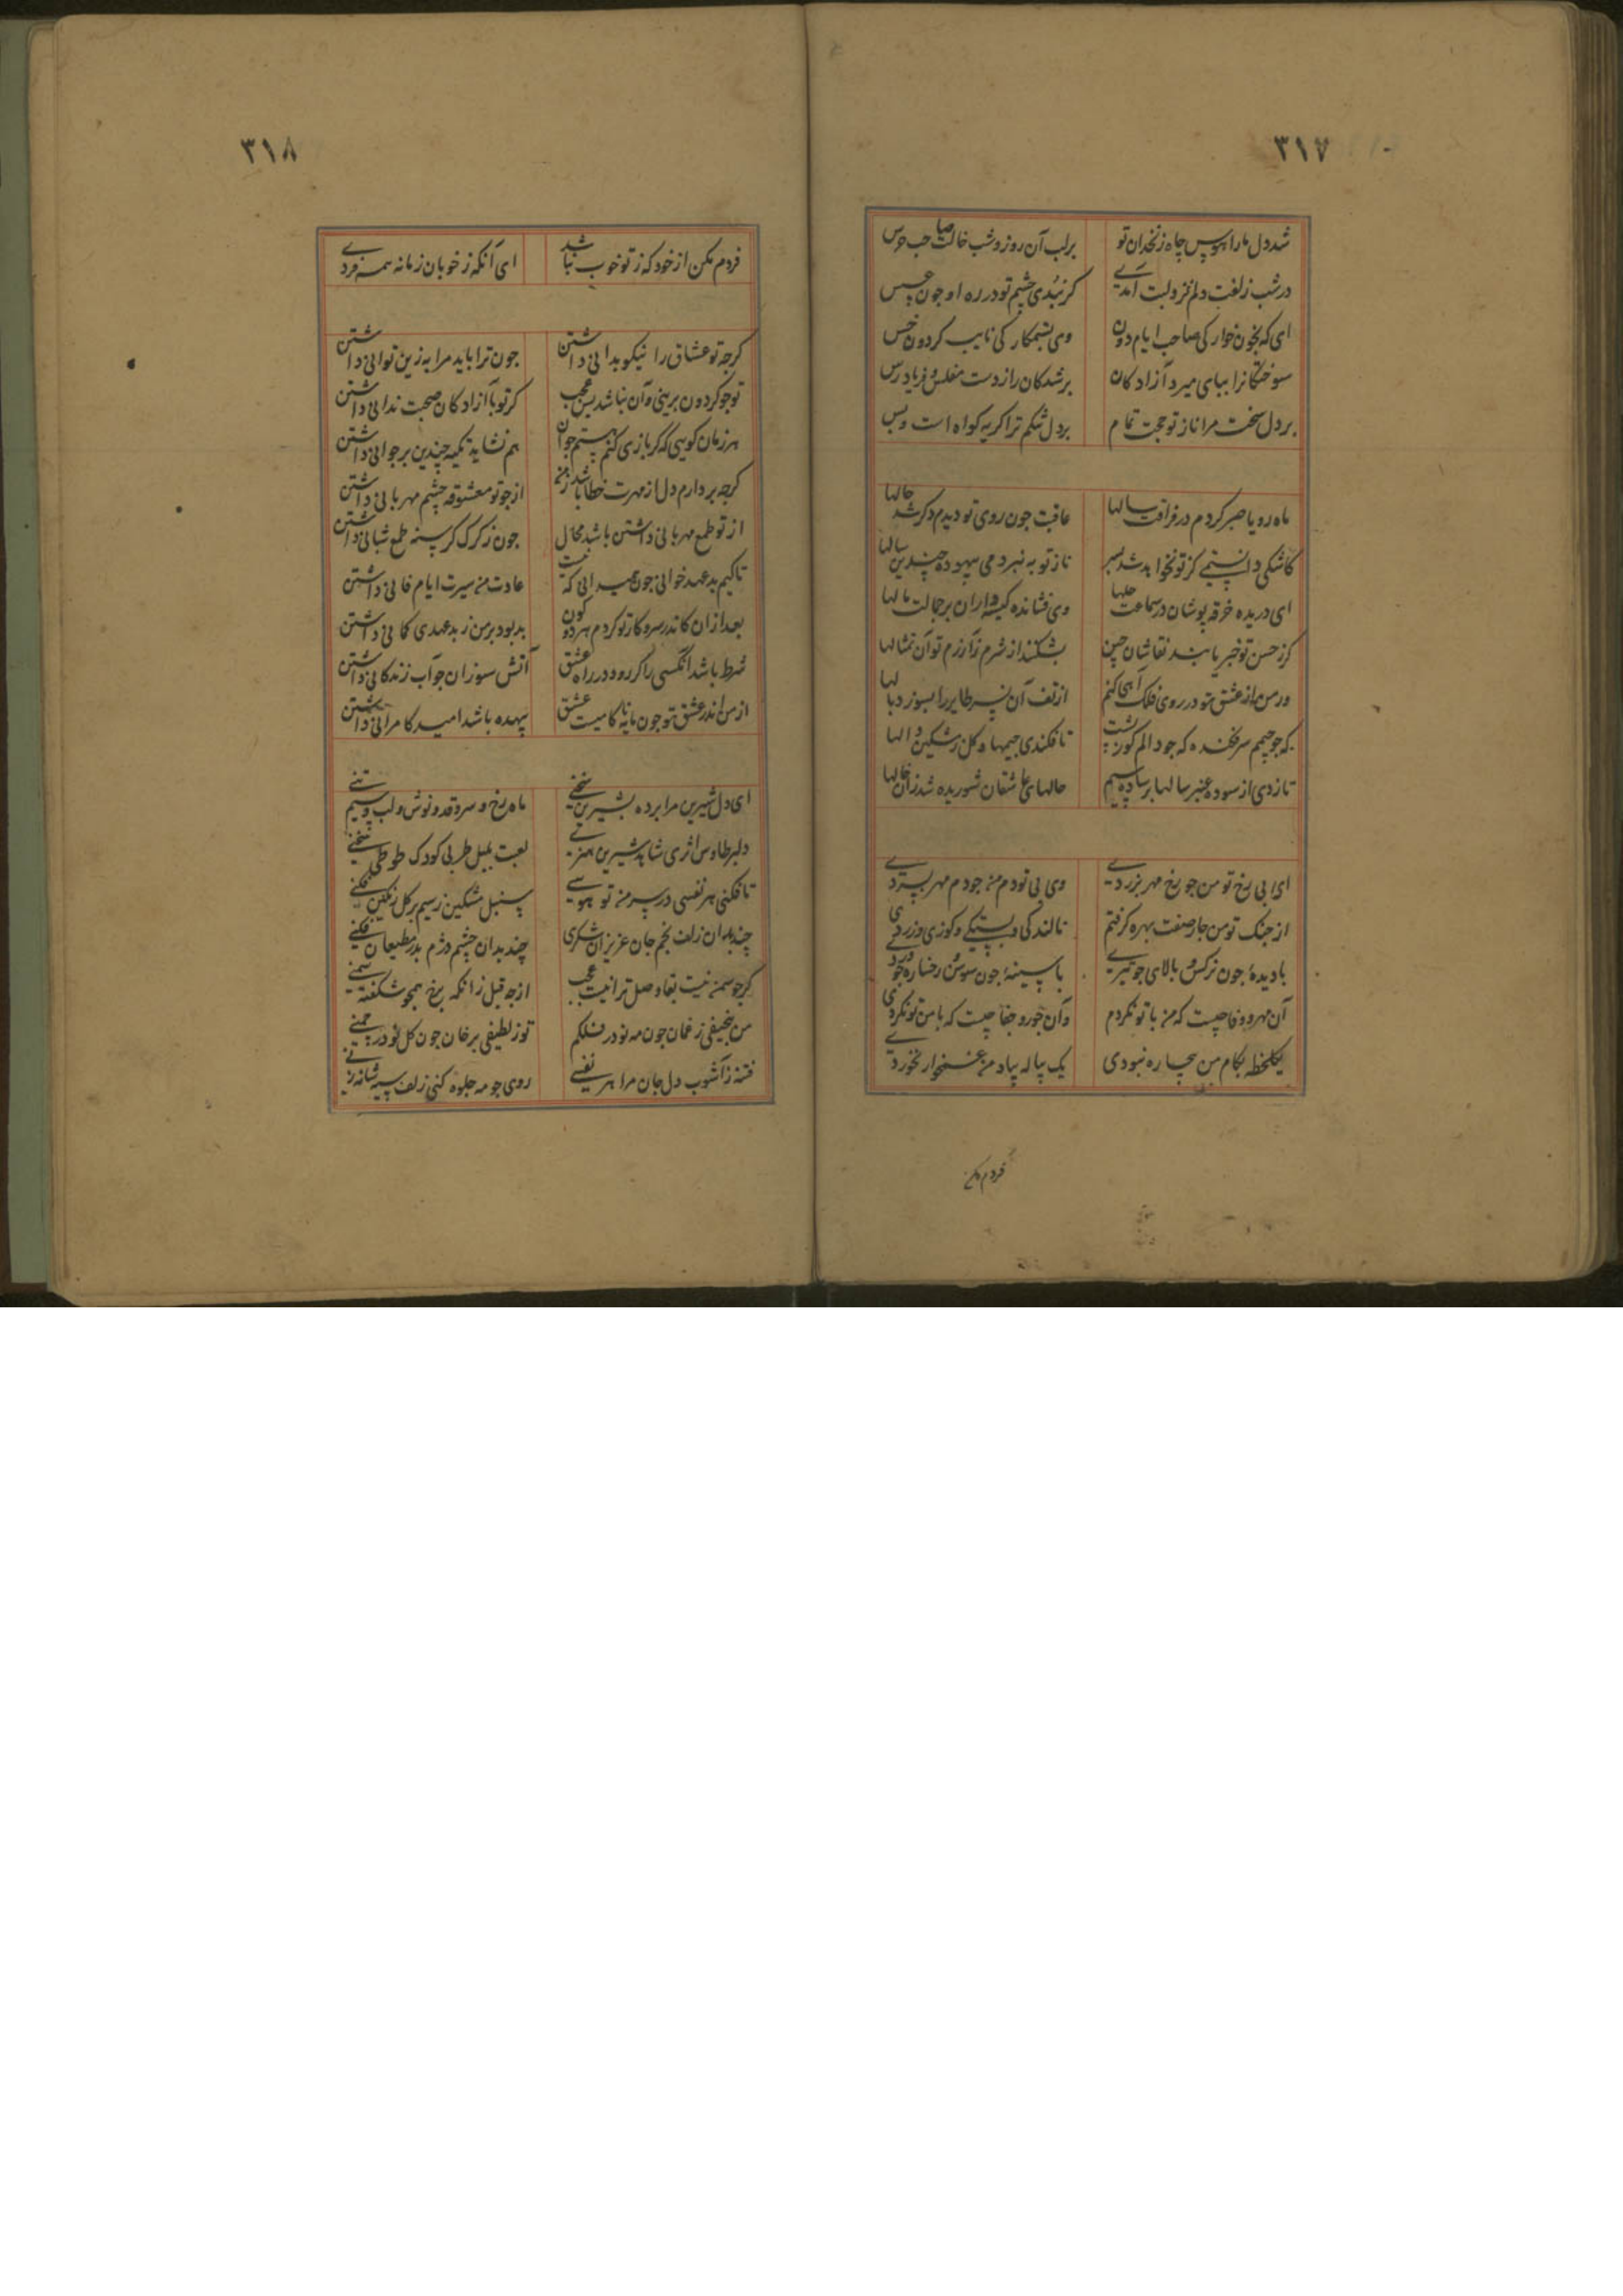 ۳۱۷
شد دل ما را هوس چاه زنخدان تو
بر لب آن روز و شب خالت صاحب حرس
در شب زلفت دلم نزد لبت آمدی
کر نبدی چشم تو در ره او جون عسس
ای که بخون خوار کی صاحب ایام دون
وی بستمکار کی نایب کردون خس
سوختکانرا بپای میرد آزادکان
بر شدکان را ز دست مفلس و فریاد رس
بر دل سخت مرا ناز تو حجت تمام
بر دل تنکم ترا کریه کواه است و بس
ماه رویا صبر کردم در فراقت سالها
عاقبت جون روی تو دیدم دکر شد حالها
کاشکی دانستمی کز تو نخواهد شد بسر
ناز تو به نبردمی بیهوده چندین سالها
ای دریده خرقه پوشان در سماعت حلها
وی فشانده کیسه داران بر جمالت مالها
کر ز حسن تو خبر یابند نقاشان چین
بشکنند از شرم آن تمثالها
ور من از عشق تو در روی فلک آهی کنم
از تف آن نسر طایر را بسوزد بالها
که جو جیمم سرفکنده که جو دالم کوز پشت
تا فکندی جیمها و کل ز مشکین دالها
تا زدی از سوده عنبر سالها بر ساده سیم
حالهای عاشقان شوریده شد زان خالها
ای بی رخ تو من جو رخ مهر بزردی
وی بی تو دم من جو دم مهر بسردی
از جنک تو من جار صفت بهره کرفتم
نالندکی و پستکی و کوزی و زردی
با دیده جون نرکس و بالای جو تیری
با سینه جون سوسن و رخساره جو وردی
آن مهر و وفا چیست که من با تو نکردم
وآن جور و جفا چیست که با من تو نکردی
یکلحظه بکام من بیچاره نبودی
یک پیاله بیاد من غمخوار نخوردی
فردم مکن
۳۱۸
فردم مکن از خود که ز تو خوب نباشد
ای آنکه ز خوبان زمانه همه فردی
کرجه تو عشاق را نیکو بدانی داشتن
جون ترا باید مرا به زین توانی داشتن
تو جو کردون برینی وآن نباشد بس عجب
کر تو با آزادکان صحبت ندانی داشتن
هر زمان کویی که کر بازی کنم هستم جوان
هم نشاید تکیه چندین بر جوانی داشتن
کرجه بردارم دل از مهرت خطا باشد ز من
از جو تو معشوقه چشم مهربانی داشتن
از تو طمع مهربانی داشتن باشد محال
جون ز کرک کرسنه طمع شبانی داشتن
تا کیم بد عهد خوانی جون همیدانی که نیست
عادت من سیرت ایام فانی داشتن
بعد از ان کاندر سر و کار تو کردم هر دو کون
بد بود بر من ز بد عهدی کمانی داشتن
شرط باشد انکسی را کو رود در راه عشق
آتش سوزان جو آب زندکانی داشتن
از من اندر عشق تو جون مایه ناکامیست عشق
بیهده باشد امید کامرانی داشتن
ای دل شیرین مرا برده بشیرین سخنی
ماه رخ و سرو قد و نوش لب و سیم تنی
دلبر طاوس اثری شاهد شیرین هنری
لعبت بلبل طربی کودک طوطی سخنی
تا فکنی هر نفسی در سر من تو هوسی
سنبل مشکین ز سیم بر کل رنکین فکنی
چند بدان زلف بخم جان عزیزان شکری
چند بدان چشم دژم بر مطیعان فکنی
کرجو سمن نیست بقا وصل ترا نیست عجب
از جه قبل زانکه برخ همجو شکفته سمنی
من بنحیفی ز غمان جون مه نو در فلکم
تو ز لطیفی بر خان جون کل نو در چمنی
فتنه ز آشوب دل جان مرا هر نفسی
روی جو مه جلوه کنی زلف سیه شانه زنی